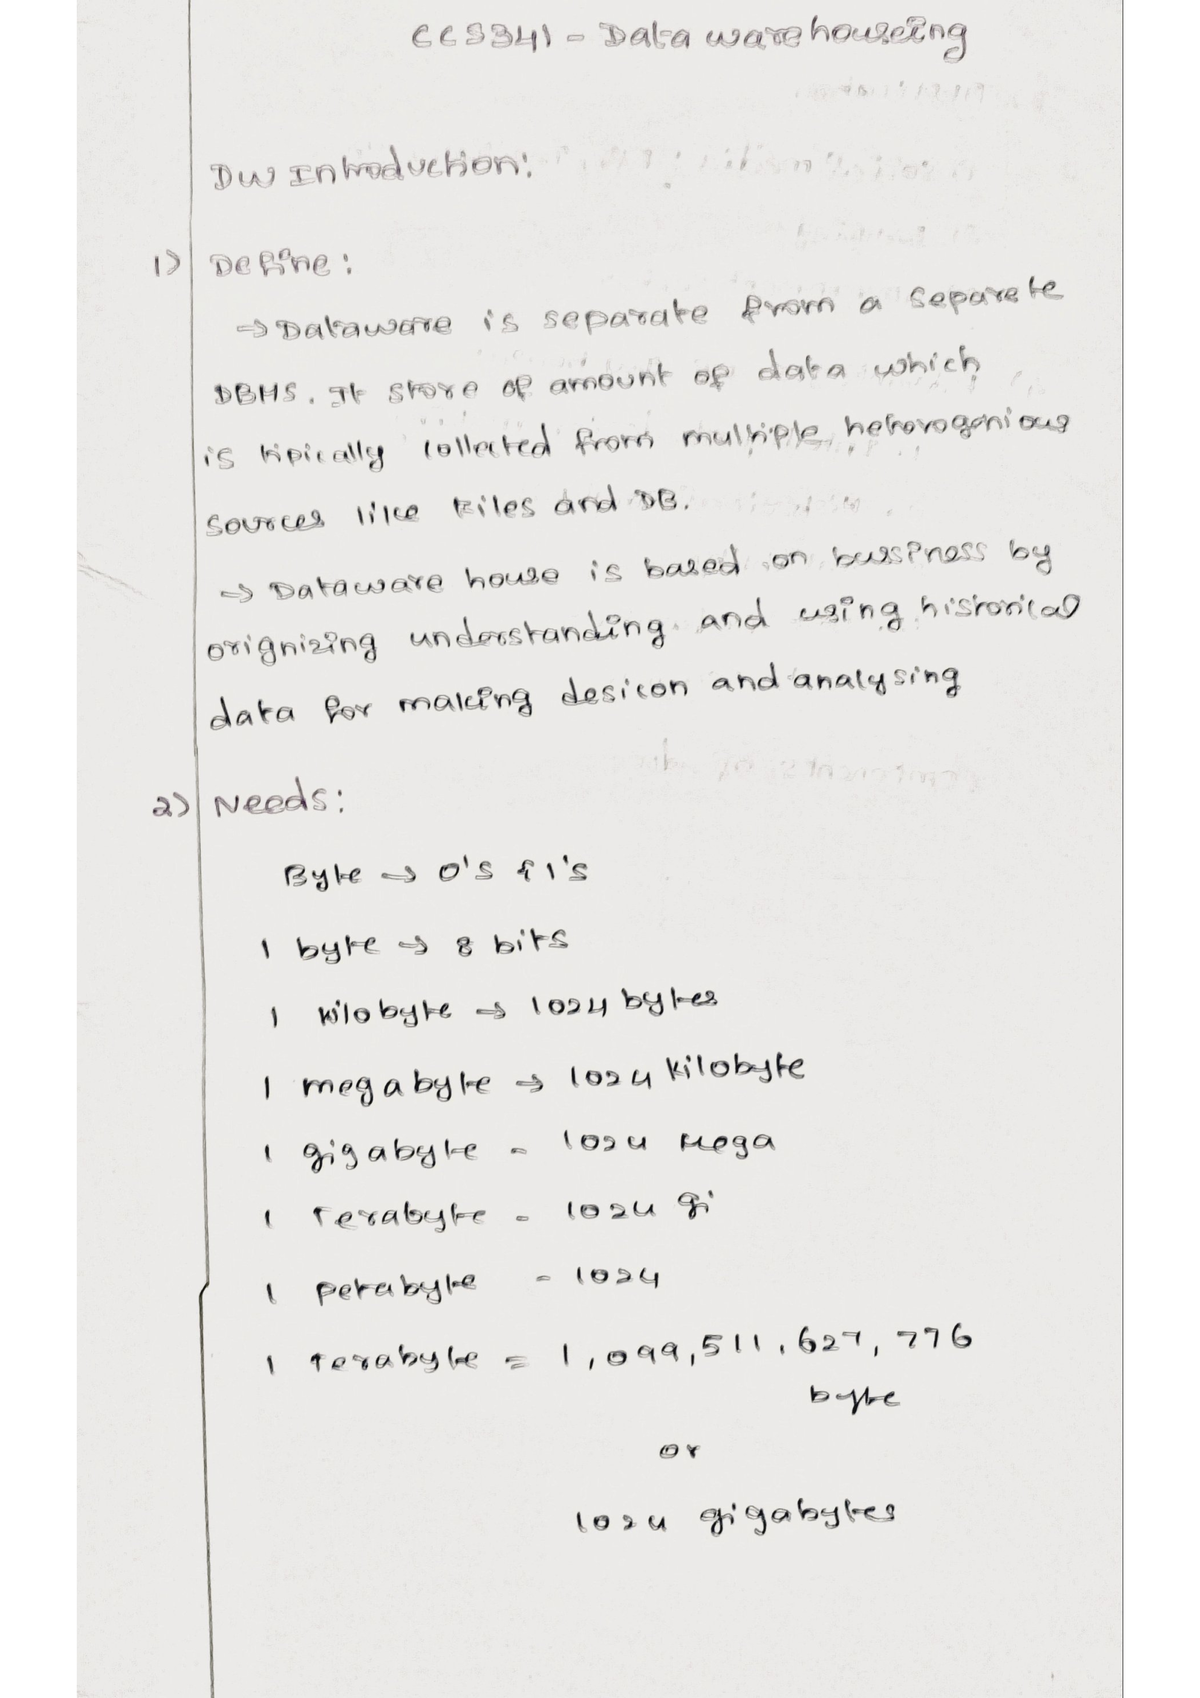 CCS341 - Data ware houseing
DW Introduction:
1) Define:
→ Dataware is separate from a separete
DBMS. It store of amount of data which
is tipically collected from multiple heterogenious
sources like Files and DB.
→ Dataware house is based on bussiness by
orignizing understanding and using historical
data for making desicon and analysing
2) Needs:
Byte → 0's & 1's
1 byte → 8 bits
1 kilobyte → 1024 bytes
1 megabyte → 1024 kilobyte
1 gigabyte - 1024 Mega
1 Terabyte - 1024 gi
1 petabyte - 1024
1 Terabyte = 1,099,511,627,776
byte
or
1024 gigabytes